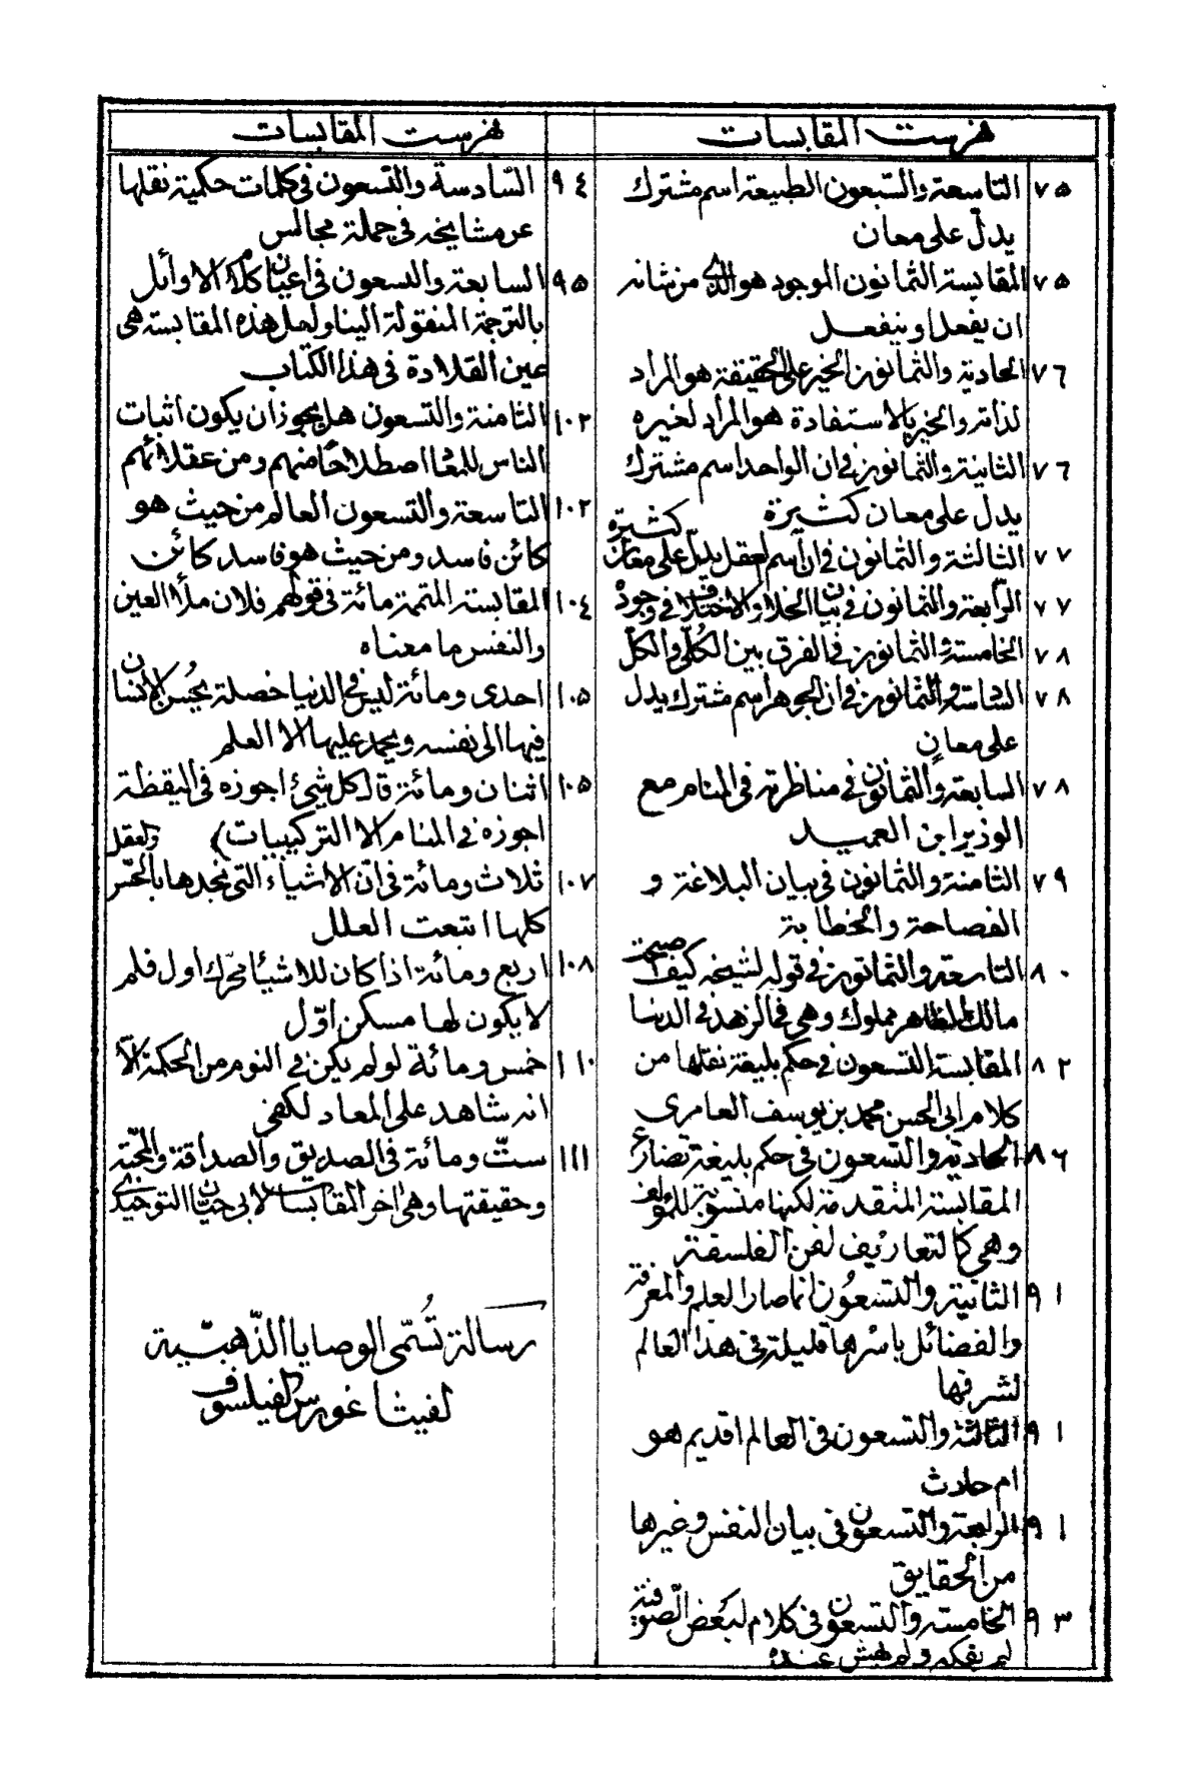 فهرست المقابسات
٧٥ التاسعة والسبعون الطبيعة اسم مشترك
يدل على معان
٧٥ المقابسة الثمانون الموجود هو الذى من شانه
ان يفعل او ينفعل
٧٦ الحادية والثمانون الخير على الحقيقة هو المراد
لذاته والخير بالاستفادة هو المراد لغيره
٧٦ الثانية والثمانون فى ان الواحد اسم مشترك
يدل على معان كثيرة
٧٧ الثالثة والثمانون فى ان اسم العقل يدل على معان كثيرة
٧٧ الرابعة والثمانون فى بيان الخلاء والاختلاف فى وجوده
٧٨ الخامسة والثمانون فى الفرق بين الكلّى والكلّ
٧٨ السادسة والثمانون فى ان الجوهر اسم مشترك يدل
على معانٍ
٧٨ السابعة والثمانون فى مناظرته فى المنام مع
الوزير ابن العميد
٧٩ الثامنة والثمانون فى بيان البلاغة و
الفصاحة والخطابة
٨٠ التاسعة والثمانون فى قوله لشيخه كيف صحت
مالك الظاهر مملوك وهى فى الزهد فى الدنيا
٨٢ المقابسة التسعون فى حكم بليغة نقلها من
كلام ابى الحسن محمد بن يوسف العامرى
٨٦ الحادية والتسعون فى حكم بليغة تضارع
المقابسة المتقدمة لكنها منسوبة للمؤلف
وهى كالتعاريف لفن الفلسفة
٩١ الثانية والتسعون انما صار العلم والمعرفة
والفضائل باسرها قليلة فى هذا العالم
لشرفها
٩١ الثالثة والتسعون فى العالم اقديم هو
ام حادث
٩١ الرابعة والتسعون فى بيان النفس وغيرها
من الحقايق
٩٣ الخامسة والتسعون فى كلام لبعض الصوفية
لم يفكه ولم يهش عنده
فهرست المقابسات
٩٤ السّادسة والتسعون فى كلمات حكمية نقلها
عن مشايخه فى جملة مجالس
٩٥ السابعة والتسعون فى اعيان كلام الاوائل
بالترجمة المنقولة الينا ولعل هذه المقابسة هى
عين القلادة فى هذا الكتاب
١٠٢ الثامنة والتسعون هل يجوز ان يكون اثبات
الناس للمعاد اصطلاحًا منهم ومن عقلائهم
١٠٢ التاسعة والتسعون العالم من حيث هو
كائن فاسد ومن حيث هو فاسد كائن
١٠٤ المقابسة المتممة مائة فى قولهم فلان ملأ العين
والنفس ما معناه
١٠٥ احدى ومائة ليس فى الدنيا خصلة يحسن الانسان
فيها الى نفسه ويحمد عليها الا العلم
١٠٥ اثنان ومائة قال كل شئ اجوزه فى اليقظة
اجوزه فى المنام الا التركيبات)
١٠٧ ثلاث ومائة فى انّ الاشياء التى نجدها بالحسّ والعقل
كلها اتبعت العلل
١٠٨ اربع ومائة اذا كان للاشياء محرّك اول فلم
لا يكون لها مسكن اوّل
١١٠ خمس ومائة لو لم يكن فى النوم من الحكمة الّا
انه شاهد على المعاد لكفى
١١١ ستّ ومائة فى الصديق والصداقة والمحبّة
وحقيقتها وهى اخر المقابسات لابى حيان التوحيدى
رسالة تُسمّى الوصايا الذّهبيّة
لفيثاغورس الفيلسوف